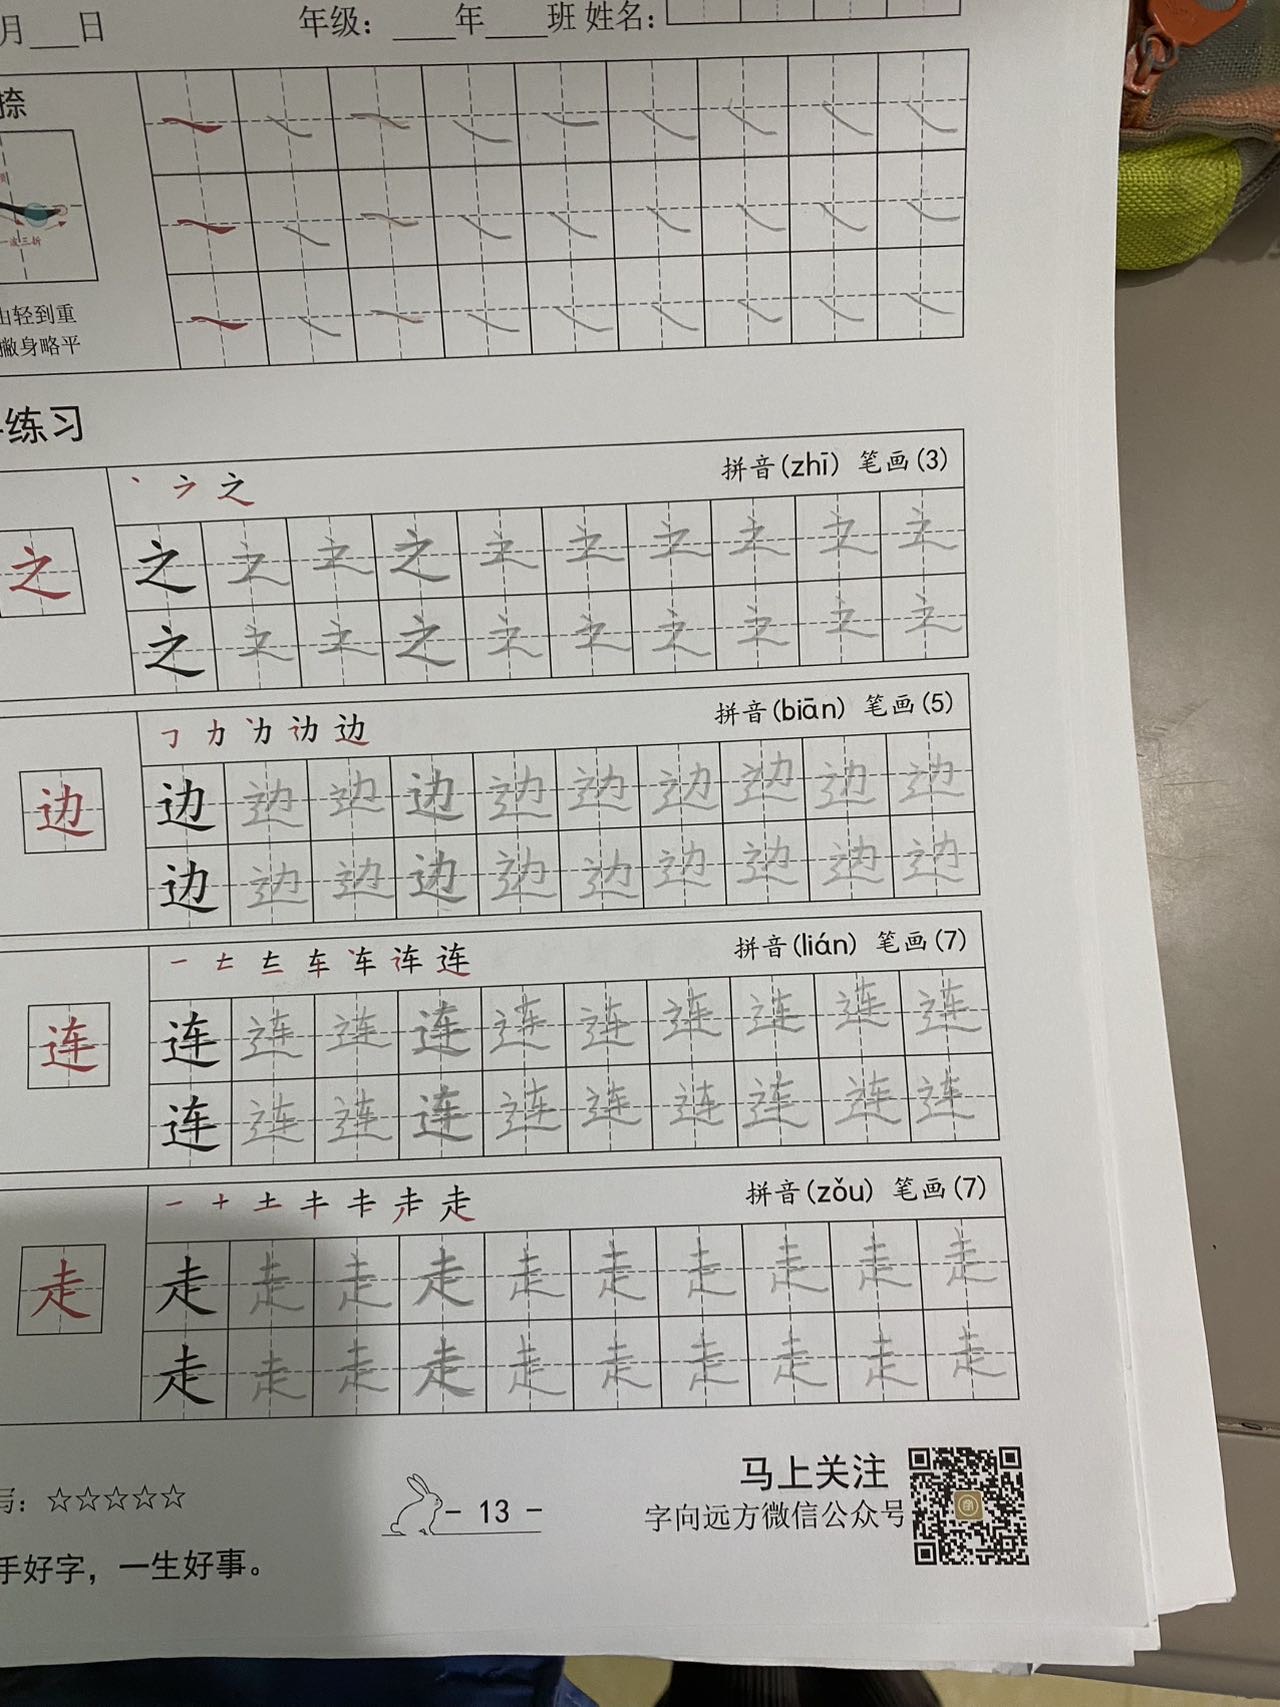 月___日 年级：____年____班 姓名：
捺
一波三折
由轻到重
撇身略平
练习
拼音(zhī) 笔画(3)
之
之 之 之 之 之 之 之 之 之 之
之 之 之 之 之 之 之 之 之 之
之
拼音(biān) 笔画(5)
力 边
边 边 边 边 边 边 边 边 边 边
边 边 边 边 边 边 边 边 边 边
边
拼音(lián) 笔画(7)
一 车 车 连
连 连 连 连 连 连 连 连 连 连
连 连 连 连 连 连 连 连 连 连
连
拼音(zǒu) 笔画(7)
一 十 土 走
走 走 走 走 走 走 走 走 走 走
走 走 走 走 走 走 走 走 走 走
走
☆☆☆☆☆
- 13 -
马上关注
字向远方微信公众号
手好字，一生好事。